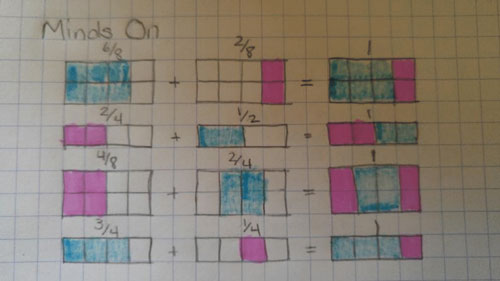 Minds On
6/8 2/8 1
+ =
2/4 1/2 1
+ =
4/8 2/4 1
+ =
3/4 1/4 1
+ =